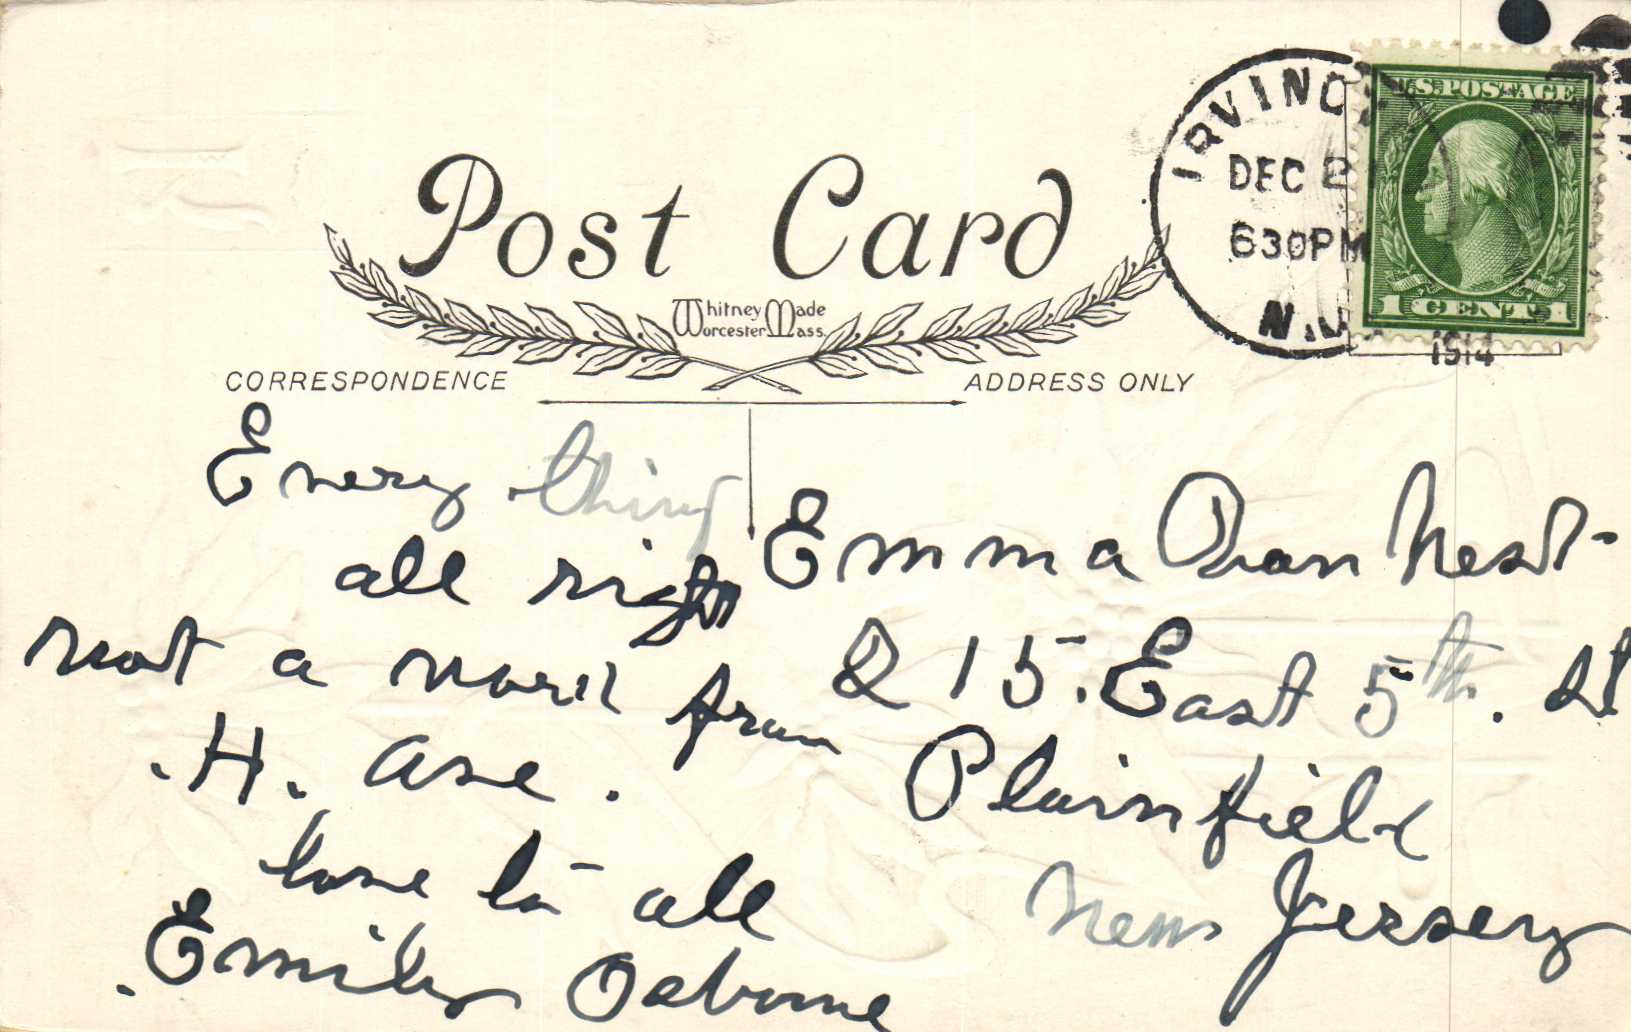 IRVING
DEC 2
630PM
N.J.
1914
U.S. POSTAGE
1 CENT 1
Post Card
Whitney Made
Worcester Mass.
CORRESPONDENCE
ADDRESS ONLY
Every thing
all right
not a word from
.H. Ase.
love to all
Emily Osborne
Emma Van Nest
215. East 5th. St
Plainfield
New Jersey